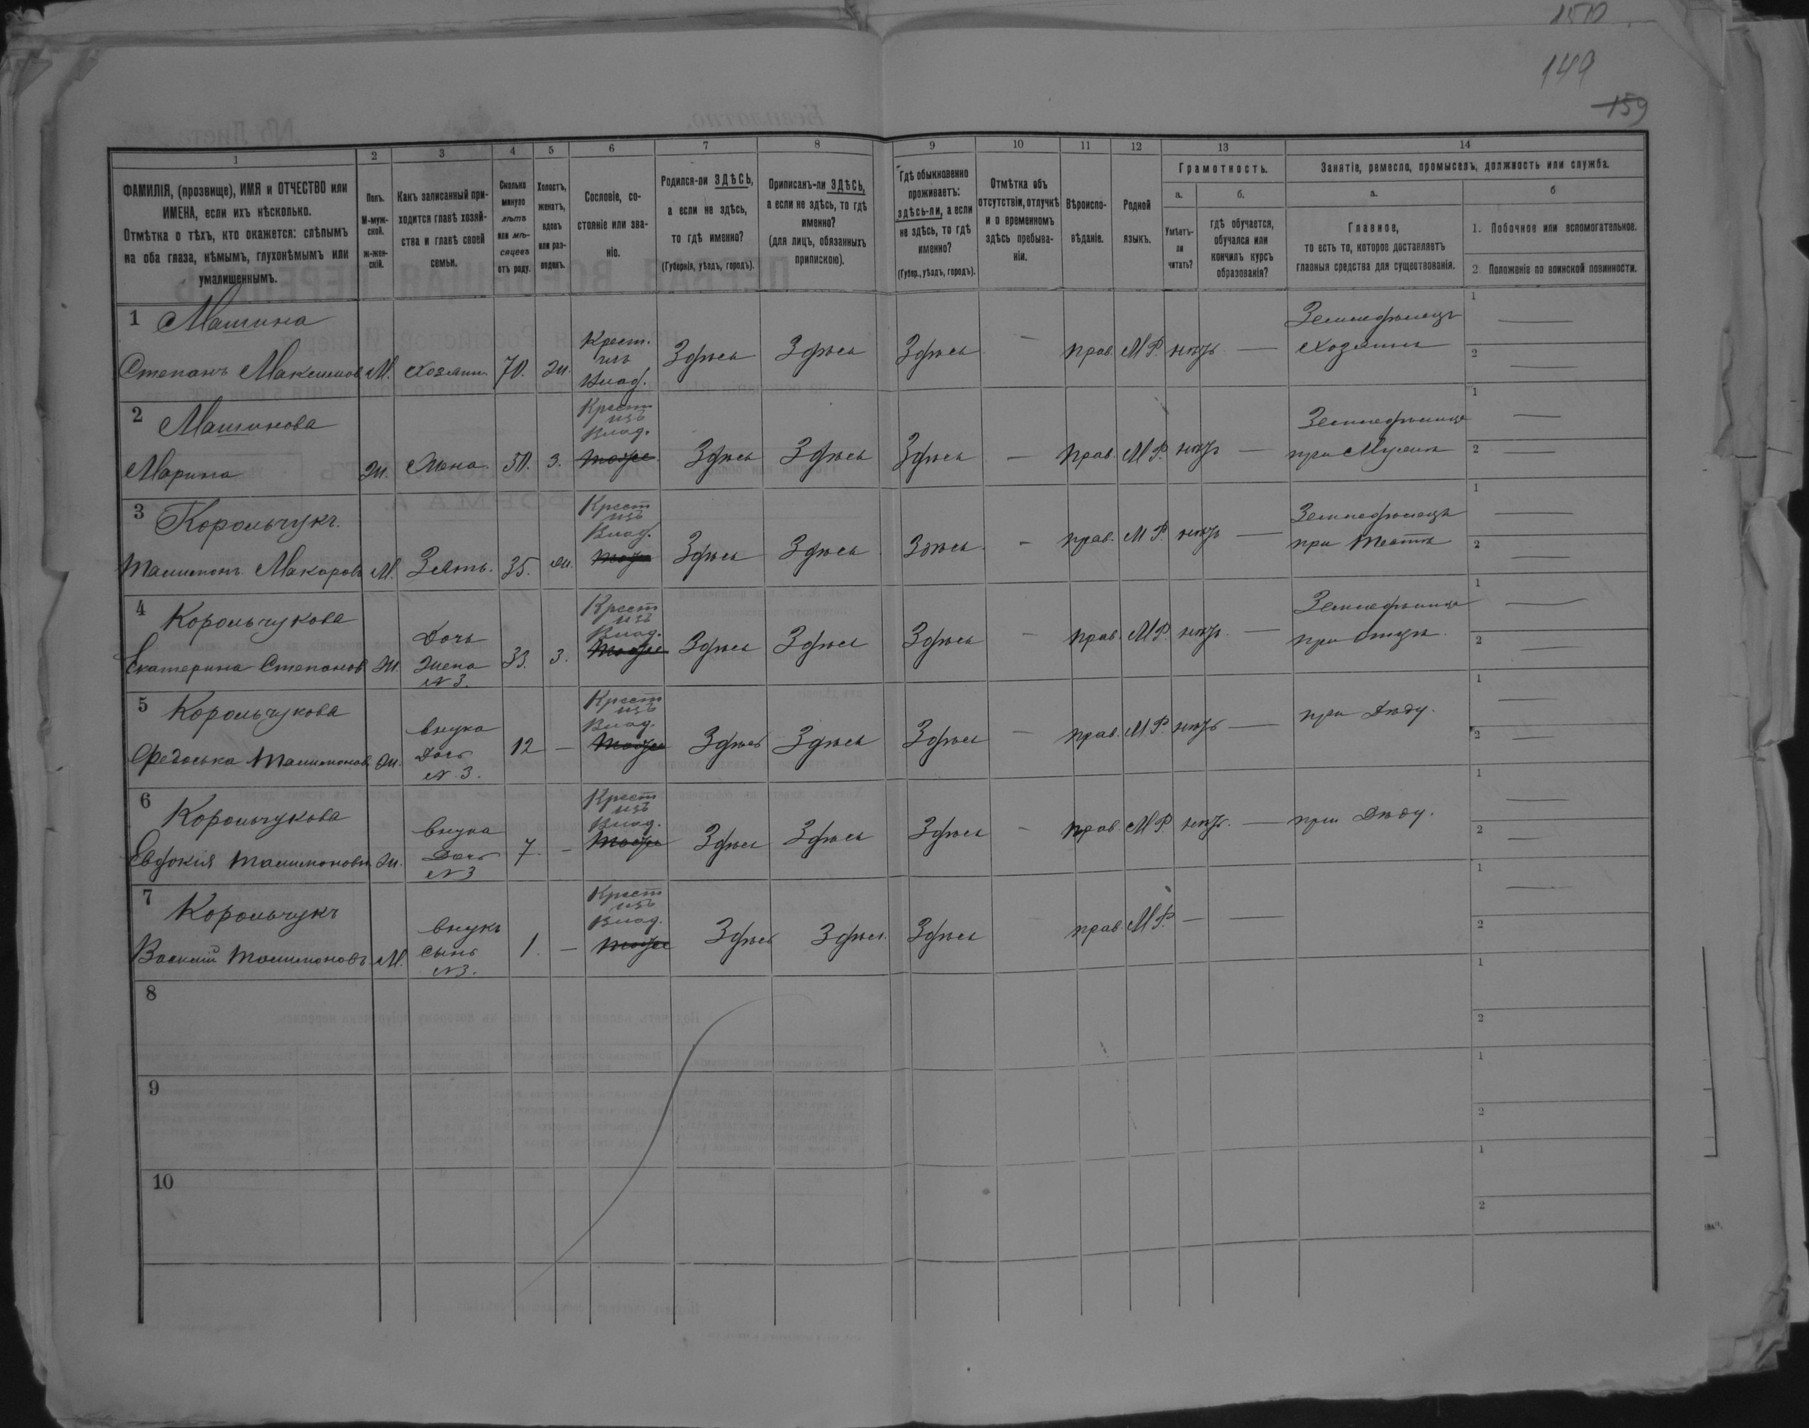 1510
149
159
1 2 3 4 5 6 7 8 9 10 11 12 13 14
ФАМИЛІЯ, (прозвище), ИМЯ и ОТЧЕСТВО или
ИМЕНА, если ихъ нѣсколько.
Отмѣтка о тѣхъ, кто окажется: слѣпымъ
на оба глаза, нѣмымъ, глухонѣмымъ или
умалишеннымъ.
Полъ.
М-муж-
ской.
ж-жен-
скій.
Какъ записанный при-
ходится главѣ хозяй-
ства и главѣ своей
семьи.
Сколько
минуло
лѣтъ
или мѣ-
сяцевъ
отъ роду.
Холостъ,
женатъ,
вдовъ
или раз-
веденъ.
Сословіе, со-
стояніе или зва-
ніе.
Родился-ли ЗДѢСЬ,
а если не здѣсь,
то гдѣ именно?
(Губернія, уѣздъ, городъ).
Приписанъ-ли ЗДѢСЬ,
а если не здѣсь, то гдѣ
именно?
(для лицъ, обязанныхъ
припискою).
Гдѣ обыкновенно
проживаетъ:
здѣсь-ли, а если
не здѣсь, то гдѣ
именно?
(Губер., уѣздъ, городъ).
Отмѣтка объ
отсутствіи, отлучкѣ
и о временномъ
здѣсь пребыва-
ніи.
Вѣроиспо-
вѣданіе.
Родной
языкъ.
Грамотность.
а. б.
Умѣетъ-
ли
читать?
гдѣ обучается,
обучался или
кончилъ курсъ
образованія?
Занятіе, ремесло, промыселъ, должность или служба.
а. б
Главное,
то есть то, которое доставляетъ
главныя средства для существованія.
1. Побочное или вспомогательное.
2 Положеніе по воинской повинности.
1 Машина
Степанъ Максимов М. Хозяин 70. Ж.
Крест.
изъ
Влад.
Здѣсь Здѣсь Здѣсь — прав. М Р. нѣтъ —
Земледѣлецъ
Хозяинъ
2 Машинова
Марина ж. Жена 50. З.
Крест
изъ
Влад.
тоже
Здѣсь Здѣсь Здѣсь — прав. М Р. нѣтъ —
при Мужѣ
3 Корольчукъ.
Макаровъ М. Зять. 35. ж.
Крест
изъ
Влад.
тоже
Здѣсь Здѣсь Здѣсь — прав. М Р нѣтъ —
Земледѣлецъ
при Тестѣ
4 Корольчукова
Екатерина Степанов ж.
Дочь
Жена
N 3.
33. З.
Крест
изъ
Влад.
тоже
Здѣсь Здѣсь Здѣсь — прав. М Р. нѣтъ —
при отцѣ
5 Корольчукова
ж.
внука
Дочь
N 3.
12 —
Крест
изъ
Влад.
тоже
Здѣсь Здѣсь Здѣсь — прав. М Р. нѣтъ —
при Дѣду.
6 Корольчукова
Евдокия ж.
внука
Дочь
N 3
7 —
Крест
изъ
Влад.
тоже
Здѣсь Здѣсь Здѣсь — прав. М Р нѣтъ. —
при Дѣду.
7 Корольчукъ
М.
внукъ
сынъ
N 3.
1. —
Крест
изъ
Влад.
тоже
Здѣсь Здѣсь Здѣсь прав. М Р. — —
8
9
10